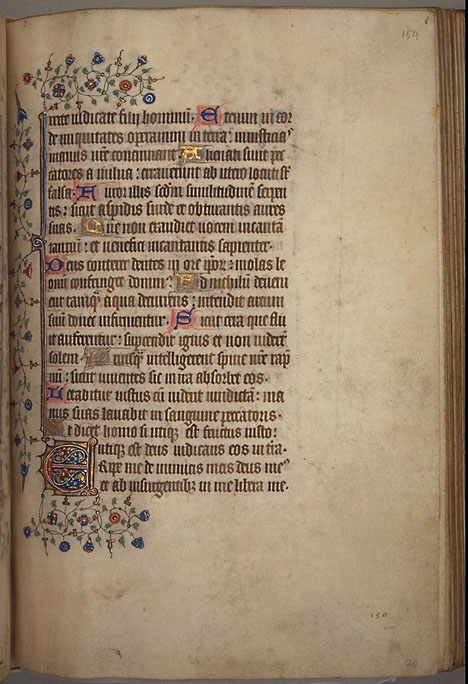 154
recte iudicate filij hominū. Etenim in cor
de iniquitates operamini in terra: iniusticias
manus vr̄e concinnant. Alienati sunt pec
catores a vulua: errauerunt ab utero locuti st̄
falsa. Furor illis scdm̄ similitudinē serpen
tis: sicut aspidis surde et obturantis aures
suas. Que non exaudiet vocem incanta
tantiū: et venefici incantantis sapienter.
Deus conteret dentes in ore ipōr: molas le
onū confringet dominꝰ. Ad nichilū deueni
ent tamqȝ aqua decurrēs: intendit arcum
suū donec infirmentur. Sicut cera que flu
it auferentur: supcecidit ignis et non viderūt
solem. Priusqȝ intelligerent spine vr̄e rāp
nū: sicut viuentes sic in ira absorbet eos.
Letabitur iustus cū viderit vindictā: ma
nus suas lauabit in sanguine peccatoris.
Et dicet homo si utiqȝ est fructus iusto:
utique est deus iudicans eos in tr̄a.
Eripe me de inimicis meis deus meꝰ
et ab insurgentibȝ in me libera me.
150